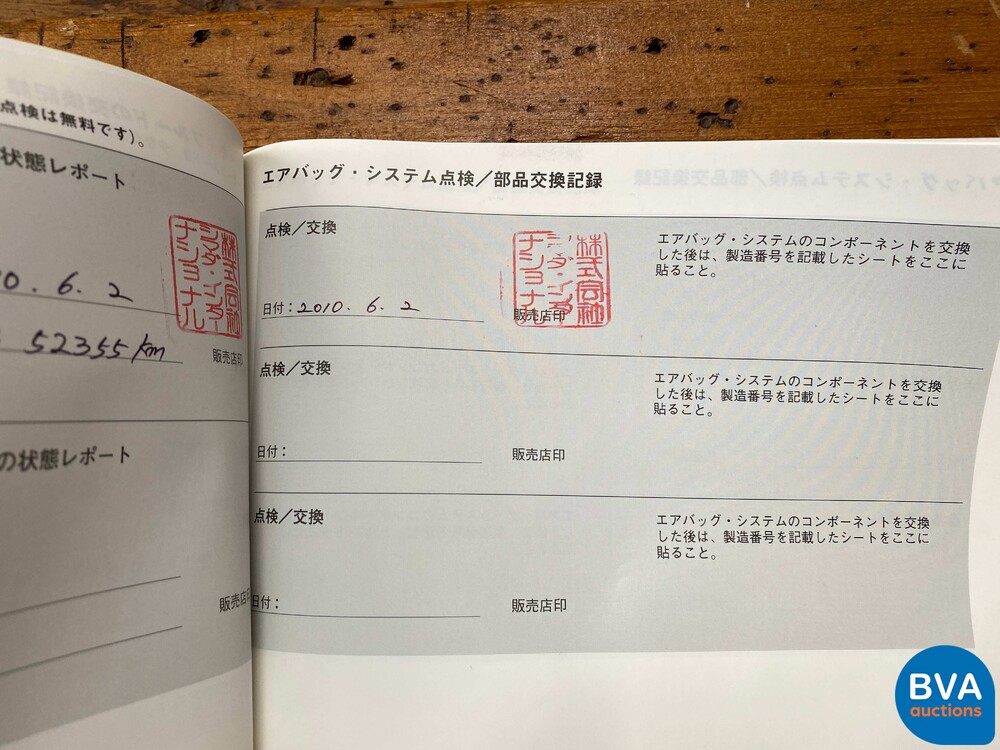 点検は無料です)。
状態レポート
0. 6. 2
52355 km
販売店印
株式会社
シマダ・インター
ナショナル
の状態レポート
販売店印
エアバッグ・システム点検／部品交換記録
点検／交換
日付：2010. 6. 2
販売店印
株式会社
ナショナル
エアバッグ・システムのコンポーネントを交換
した後は、製造番号を記載したシートをここに
貼ること。
点検／交換
日付：
販売店印
エアバッグ・システムのコンポーネントを交換
した後は、製造番号を記載したシートをここに
貼ること。
点検／交換
日付：
販売店印
エアバッグ・システムのコンポーネントを交換
した後は、製造番号を記載したシートをここに
貼ること。
BVA
auctions